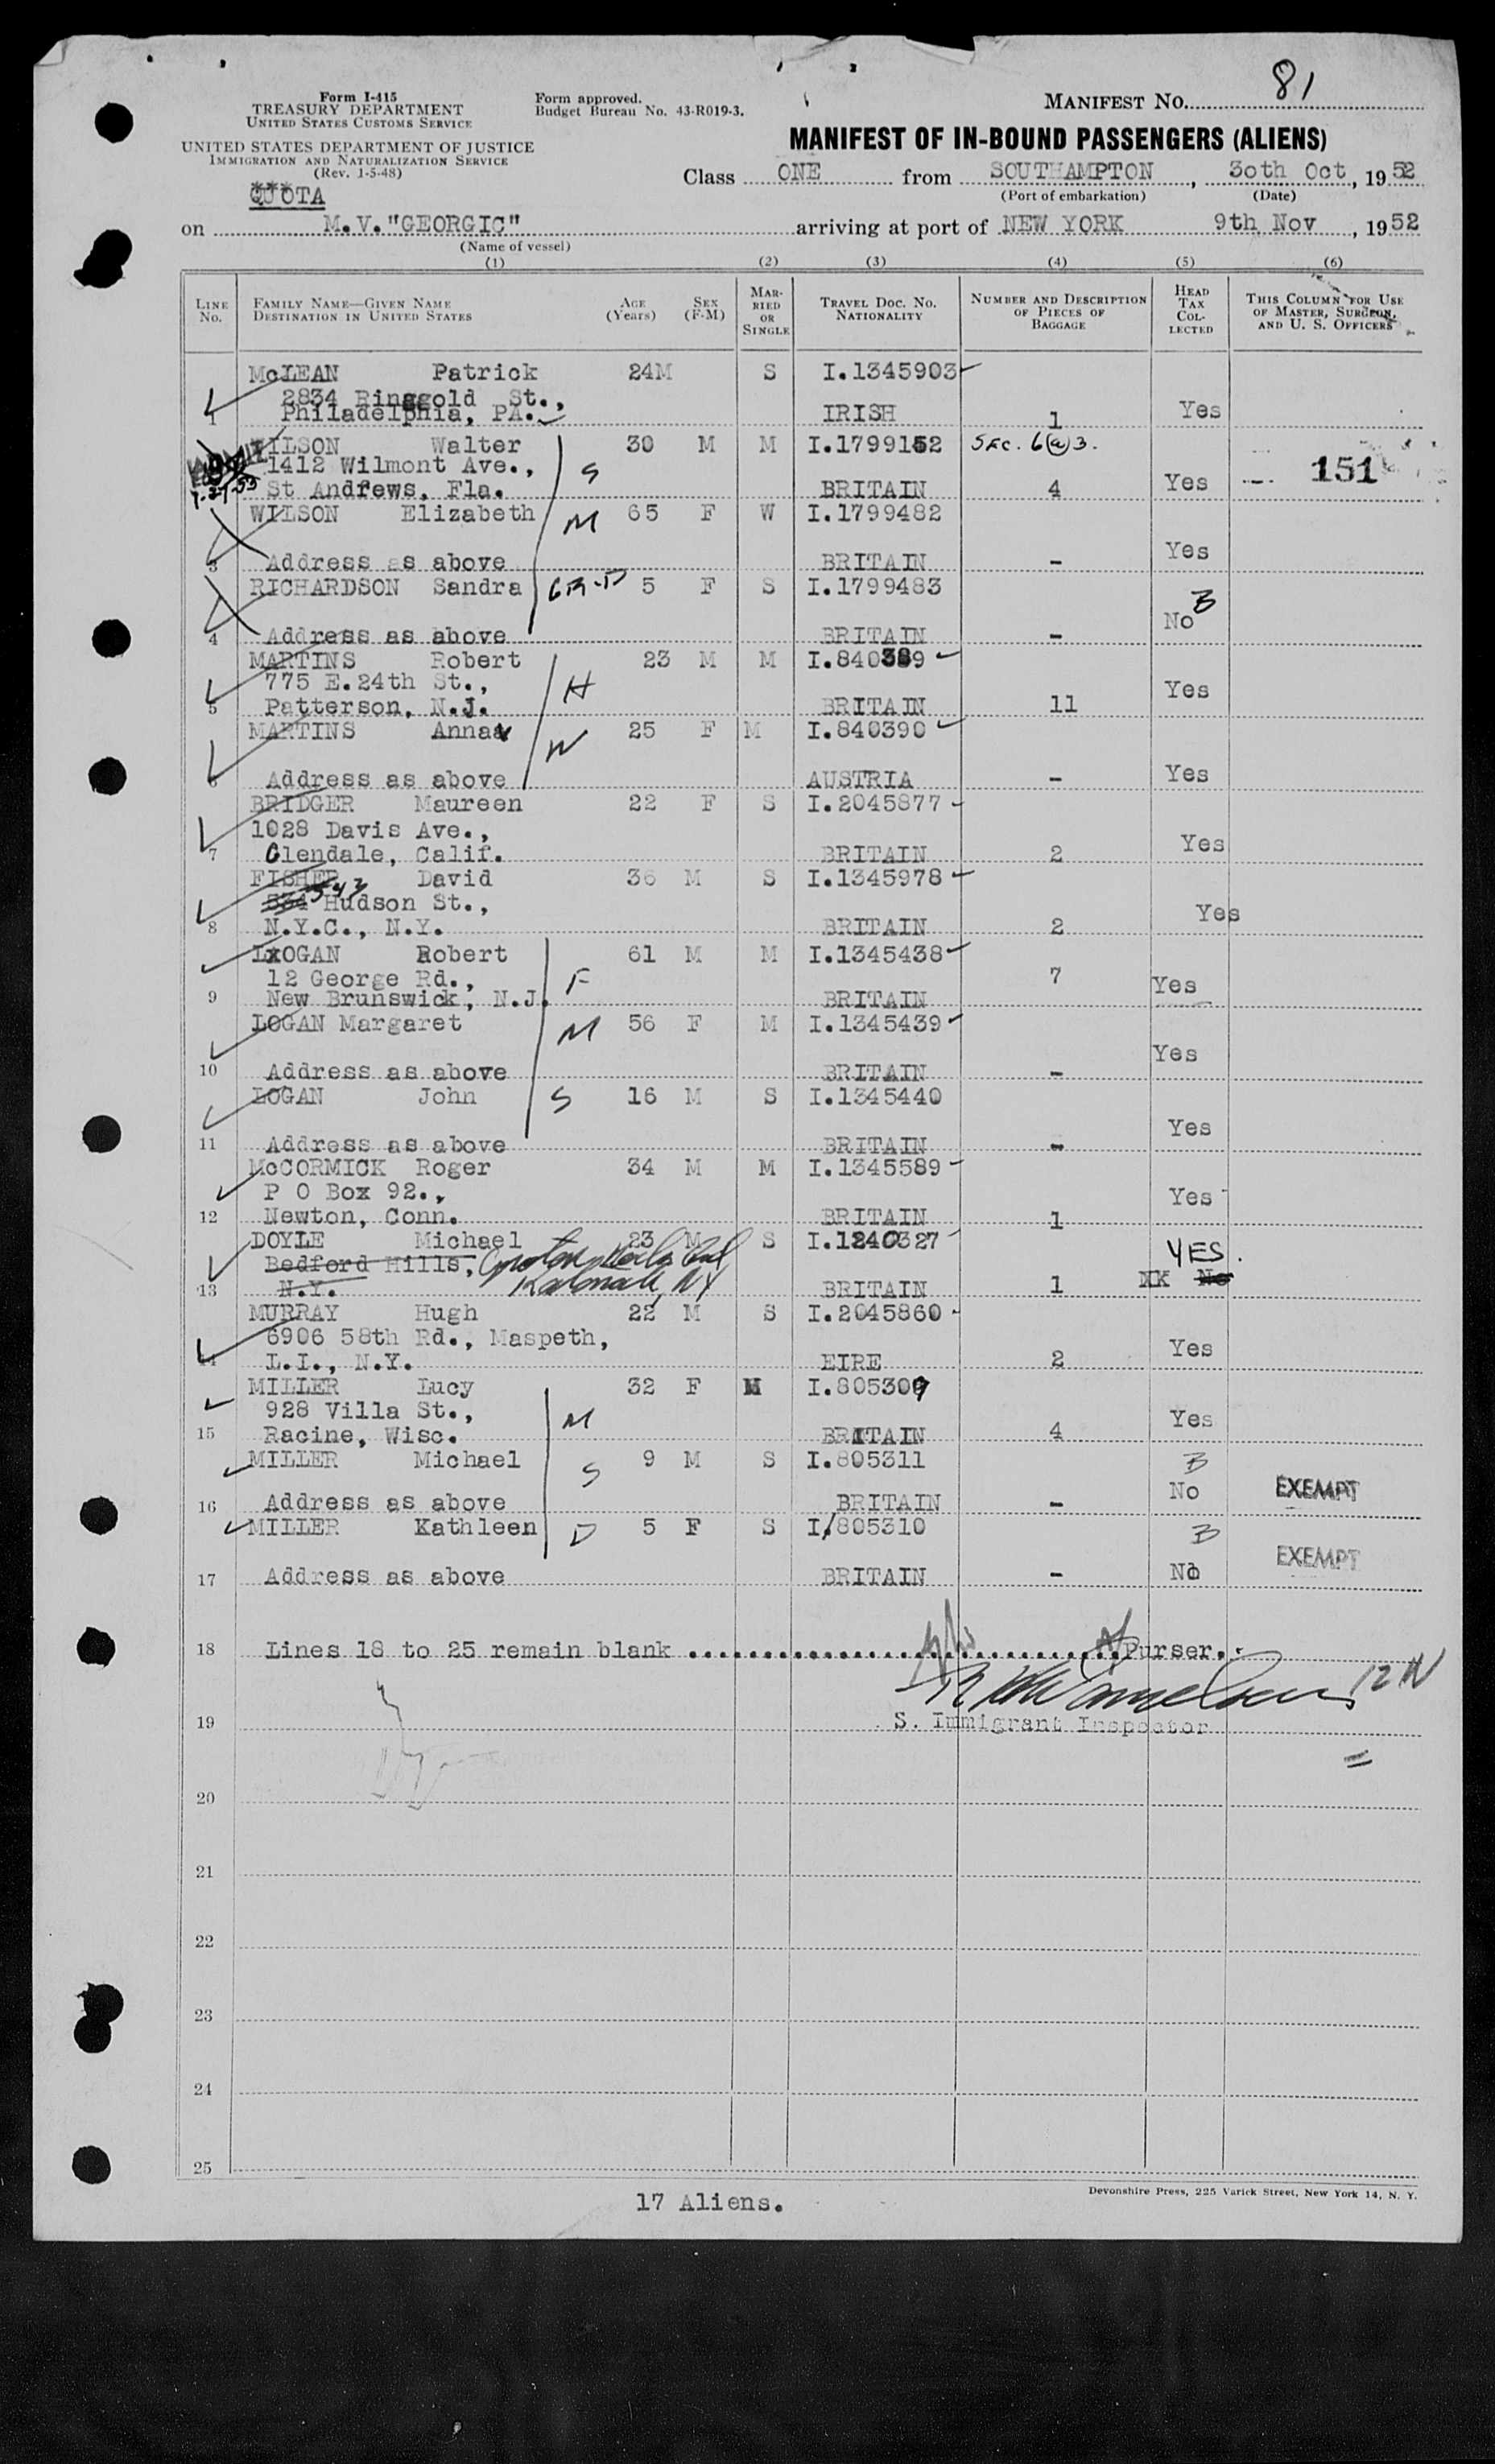 Form I-415
TREASURY DEPARTMENT
UNITED STATES CUSTOMS SERVICE
UNITED STATES DEPARTMENT OF JUSTICE
IMMIGRATION AND NATURALIZATION SERVICE
(Rev. 1-5-48)
Form approved.
Budget Bureau No. 43-R019-3.
MANIFEST NO. 81
MANIFEST OF IN-BOUND PASSENGERS (ALIENS)
Class ONE from SOUTHAMPTON, 30th Oct, 1952
(Port of embarkation) (Date)
QUOTA
on M.V."GEORGIC" arriving at port of NEW YORK 9th Nov, 1952
(Name of vessel)
(1) (2) (3) (4) (5) (6)
LINE NO. FAMILY NAME—GIVEN NAME DESTINATION IN UNITED STATES AGE (Years) SEX (F-M) MARRIED OR SINGLE TRAVEL DOC. NO. NATIONALITY NUMBER AND DESCRIPTION OF PIECES OF BAGGAGE HEAD TAX COLLECTED THIS COLUMN FOR USE OF MASTER, SURGEON, AND U. S. OFFICERS
McLEAN Patrick 24M S I.1345903
2834 Ringgold St.,
1 Philadelphia, PA. IRISH 1 Yes
WILSON Walter 30 M M I.1799152 SEC. 6(a)3.
1412 Wilmont Ave., S 151
St Andrews, Fla. BRITAIN 4 Yes
WILSON Elizabeth M 65 F W I.1799482
3 Address as above BRITAIN - Yes
RICHARDSON Sandra GR-D 5 F S I.1799483
4 Address as above BRITAIN - No B
MARTINS Robert 23 M M I.840389
775 E.24th St., H
5 Patterson, N.J. BRITAIN 11 Yes
MARTINS Anna 25 F M I.840390
W
6 Address as above AUSTRIA - Yes
BRIDGER Maureen 22 F S I.2045877
1028 Davis Ave.,
7 Glendale, Calif. BRITAIN 2 Yes
FISHER David 36 M S I.1345978
543 Hudson St.,
8 N.Y.C., N.Y. BRITAIN 2 Yes
LxOGAN Robert 61 M M I.1345438
12 George Rd., F 7 Yes
9 New Brunswick, N.J. BRITAIN
LOGAN Margaret M 56 F M I.1345439
10 Address as above BRITAIN - Yes
LOGAN John S 16 M S I.1345440
11 Address as above BRITAIN - Yes
McCORMICK Roger 34 M M I.1345589
P O Box 92., Yes
12 Newton, Conn. BRITAIN 1
DOYLE Michael 23 M S I.1240327
Bedford Hills, YES.
13 N.Y. Katonah, NY BRITAIN 1 XX No
MURRAY Hugh 22 M S I.2045860
6906 58th Rd., Maspeth,
14 L.I., N.Y. EIRE 2 Yes
MILLER Lucy 32 F M I.805309
928 Villa St., M
15 Racine, Wisc. BRITAIN 4 Yes
MILLER Michael S 9 M S I.805311 B
16 Address as above BRITAIN - No EXEMPT
MILLER Kathleen D 5 F S I/805310 B
17 Address as above BRITAIN - No EXEMPT
18 Lines 18 to 25 remain blank ........ Purser.
12 N
19 S. Immigrant Inspector
20
21
22
23
24
25
17 Aliens.
Devonshire Press, 225 Varick Street, New York 14, N. Y.